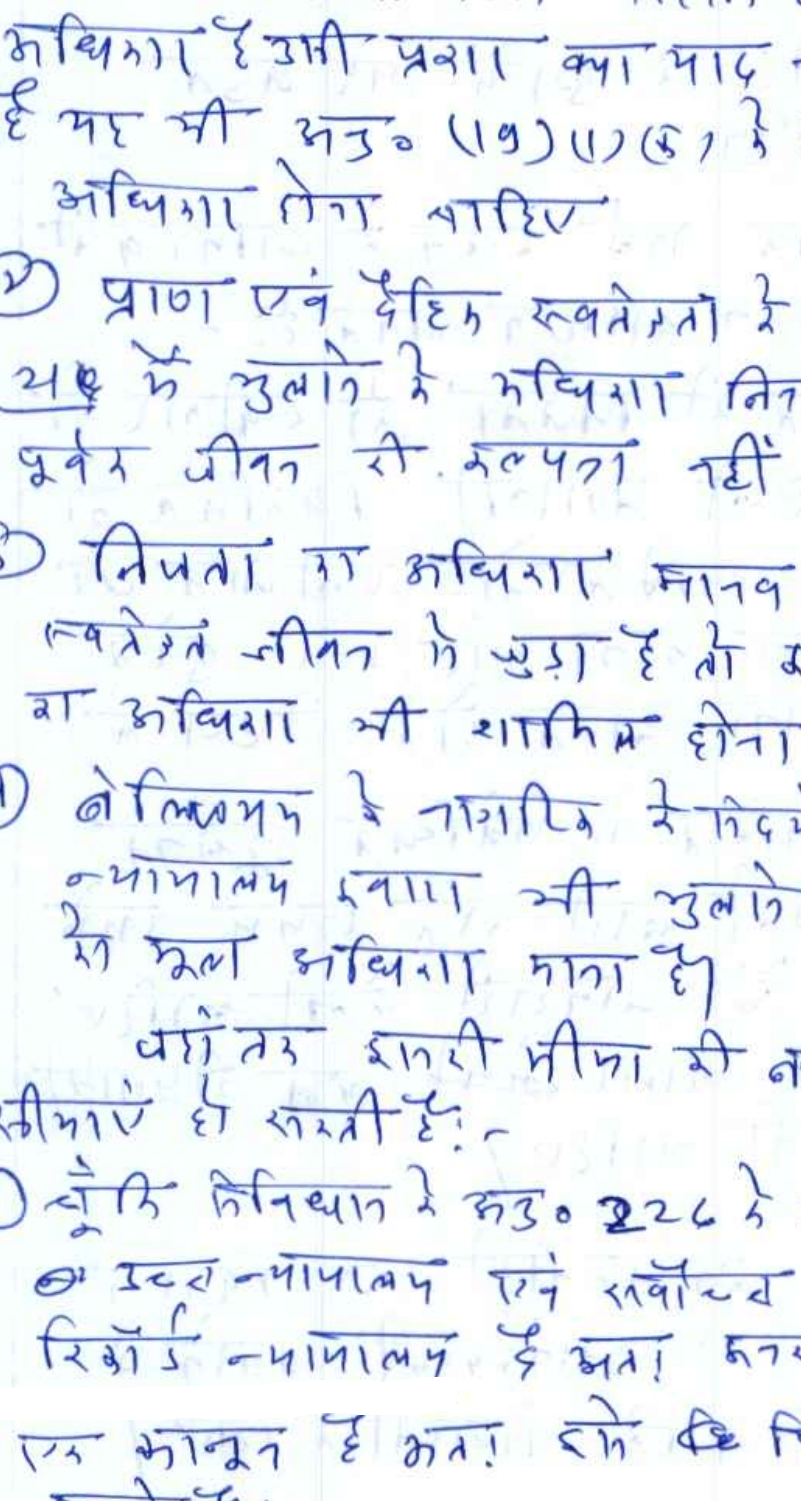 अधिकार है उसी प्रकार क्या याद
है यह भी अनु० (19)(1)(क) के
अधिकार होना चाहिए
② प्राण एवं दैहिक स्वतंत्रता के
21 में भुलाने के अधिकार
पूर्वक जीवन की कल्पना नहीं
③ निजता का अधिकार मानव
स्वतंत्र जीवन से जुड़ा है तो
का अधिकार भी शामिल होना
के नागरिक के
न्यायालय द्वारा भी भुलाने
को मूल अधिकार माना है।
जहां तक इसकी सीमा की
सीमाएं हो सकती है:-
चूँकि संविधान के अनु० 226 के
उच्च न्यायालय एवं सर्वोच्च
रिकॉर्ड न्यायालय है अतः
एक कानून है अतः इसे